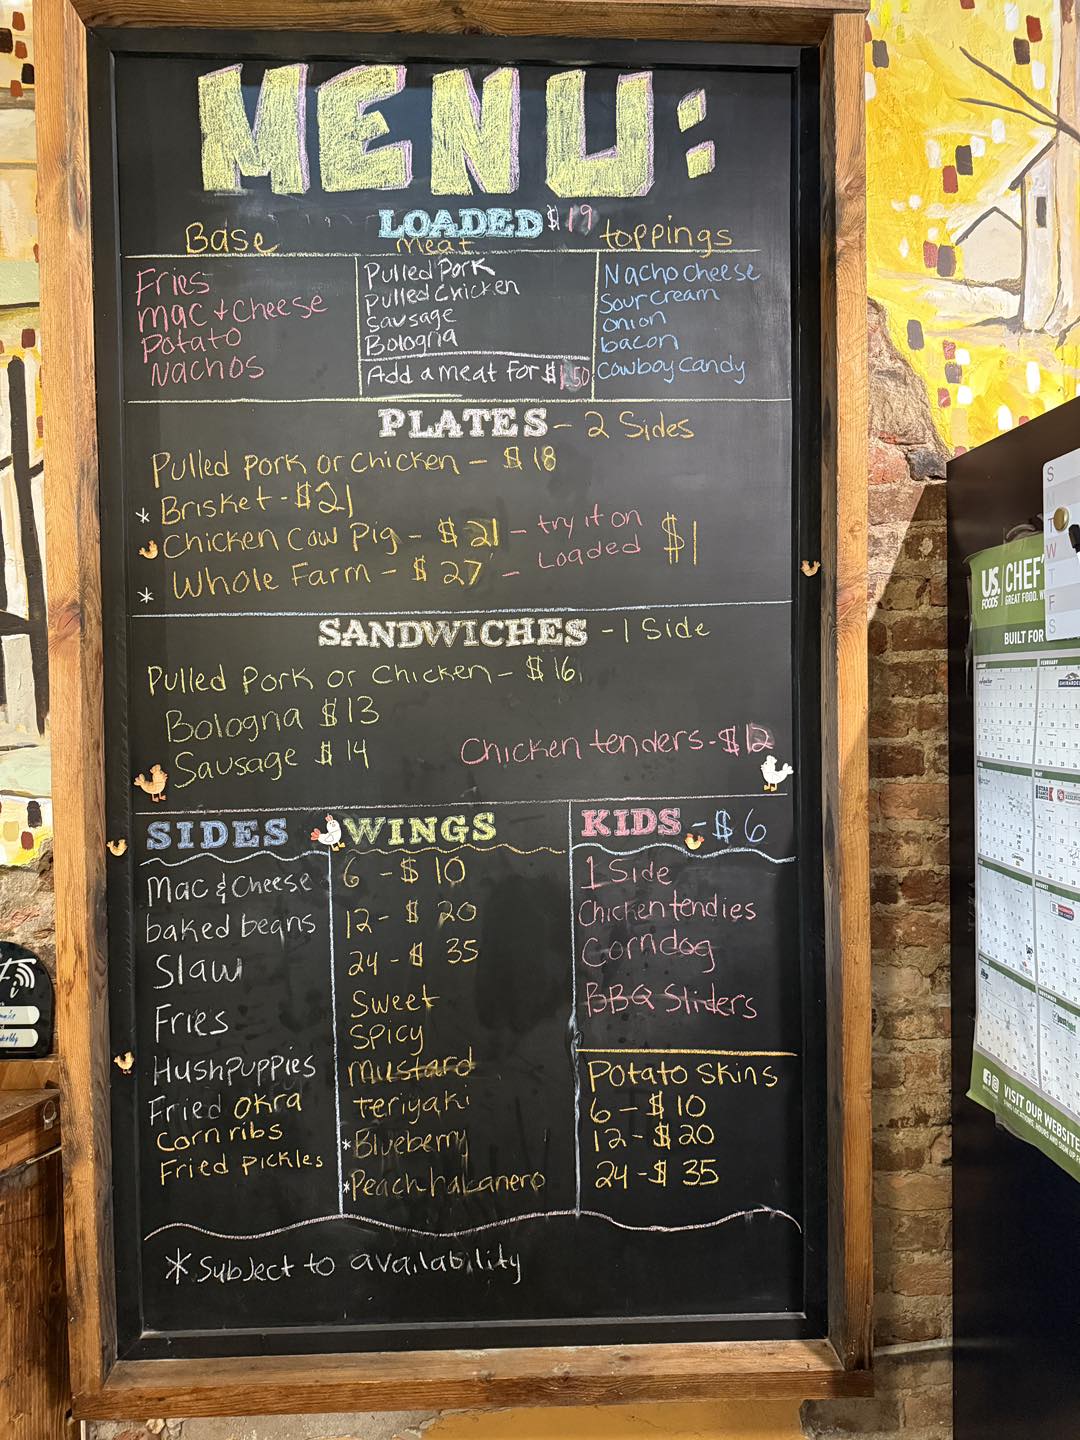 MENU:
LOADED $19
Base
meat
toppings
Fries
Mac + Cheese
Potato
Nachos
Pulled Pork
Pulled Chicken
Sausage
Bologna
Add a meat for $1.50
Nacho cheese
Sour Cream
onion
bacon
Cowboy Candy
PLATES - 2 Sides
Pulled pork or chicken - $18
* Brisket - $21
Chicken Cow Pig - $21 - try it on
Loaded $1
* Whole Farm - $27 -
SANDWICHES - 1 Side
Pulled Pork or Chicken - $16
Bologna $13
Sausage $14
Chicken tenders - $12
SIDES
Mac & Cheese
baked beans
Slaw
Fries
Hushpuppies
Fried okra
Corn ribs
Fried pickles
WINGS
6 - $10
12 - $20
24 - $35
Sweet
Spicy
Mustard
teriyaki
*Blueberry
*Peach habanero
KIDS - $6
1 Side
Chicken tendies
Corndog
BBQ Sliders
Potato Skins
6 - $10
12 - $20
24 - $35
* Subject to availability
S
M
T
W
T
F
S
US.
FOODS
CHEF'
GREAT FOOD.
BUILT FOR
VISIT OUR WEBSITE